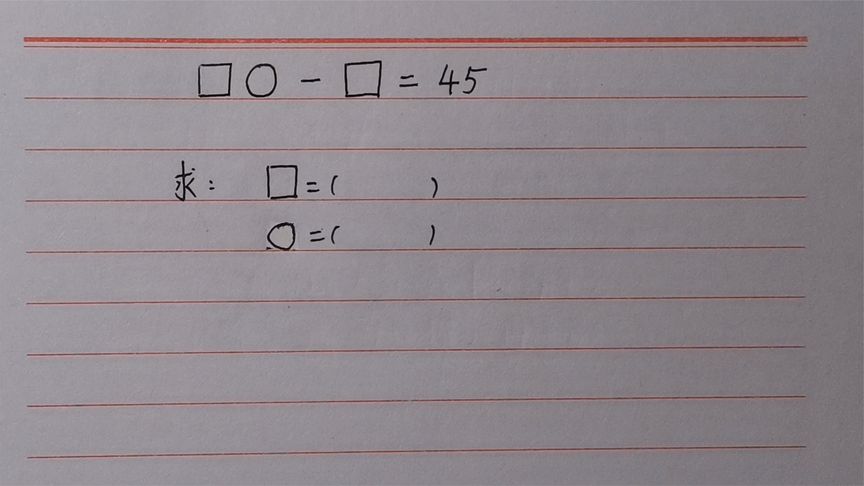 □○-□=45
求: □=( )
○=( )